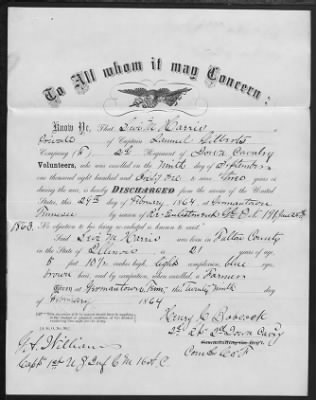 To All whom it may Concern:
Know Ye, That Levi M Harris
Private of Captain Samuel Gilberts
Company (F.) 2nd Regiment of Iowa Cavalry
Volunteers, who was enrolled in the Ninth day of September
one thousand eight hundred and Sixty One to serve Three years or
during the war, is hereby DISCHARGED from the service of the United
States, this 29th day of February, 1864, at Germantown
Tennessee by reason of Re-Enlistment
1863. No objection to his being re-enlisted is known to exist.
Said Levi M Harris was born in Fulton County
in the State of Illinois, is 21 years of age,
5 feet 10 1/2 inches high, Light complexion, blue eyes,
brown hair, and by occupation, when enrolled, a Farmer
Given at Germantown, Tenn, this Twenty Ninth day of
February 1864
Henry C Babcock
2nd Iowa Cavy
Comdg Co F
Williams
Capt 1st U S Inf C M 16 A. C.